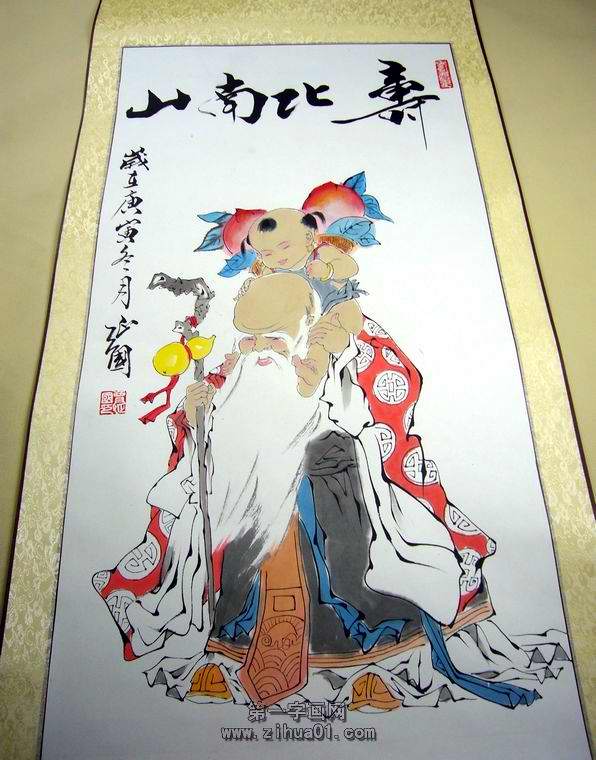 壽比南山
歲在庚寅冬月
第一字画网
www.zihua01.com